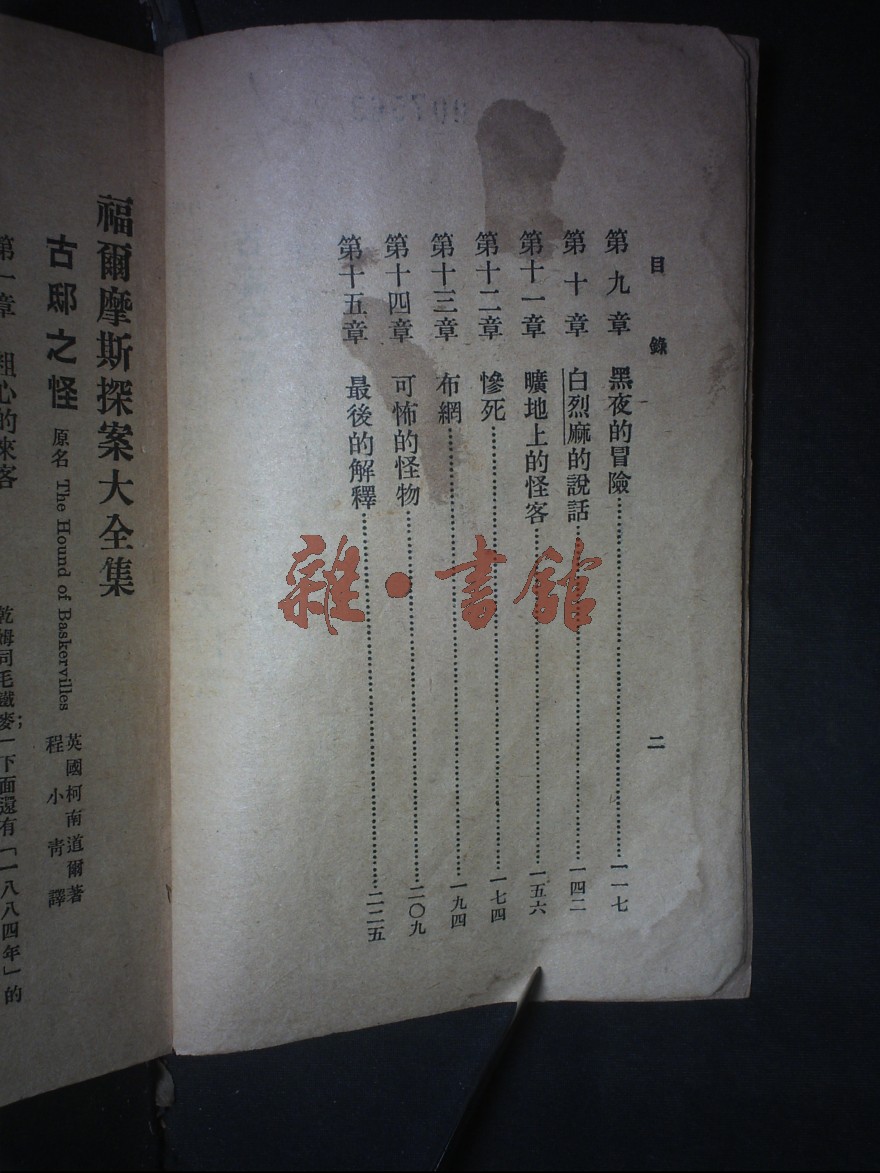 目錄
二
第九章 黑夜的冒險……一一七
第十章 白烈麻的說話……一四二
第十一章 曠地上的怪客……一五六
第十二章 慘死……一七四
第十三章 布網……一九四
第十四章 可怖的怪物……二〇九
第十五章 最後的解釋……二二五
雜·書館
福爾摩斯探案大全集
古邸之怪 原名 The Hound of Baskervilles
英國柯南道爾著
程小青譯
第一章 粗心的來客
乾姆司毛鐵麥；一下面還有「一八八四年」的